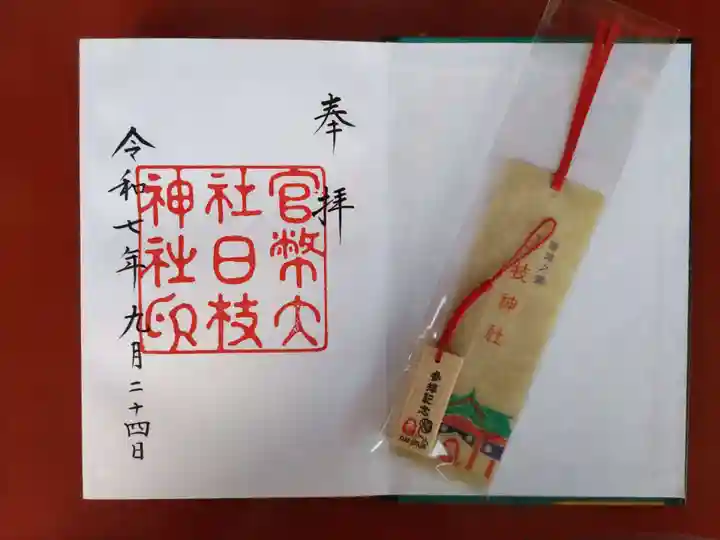 奉拝
官幣大
社日枝
神社印
令和七年九月二十四日
枝神社